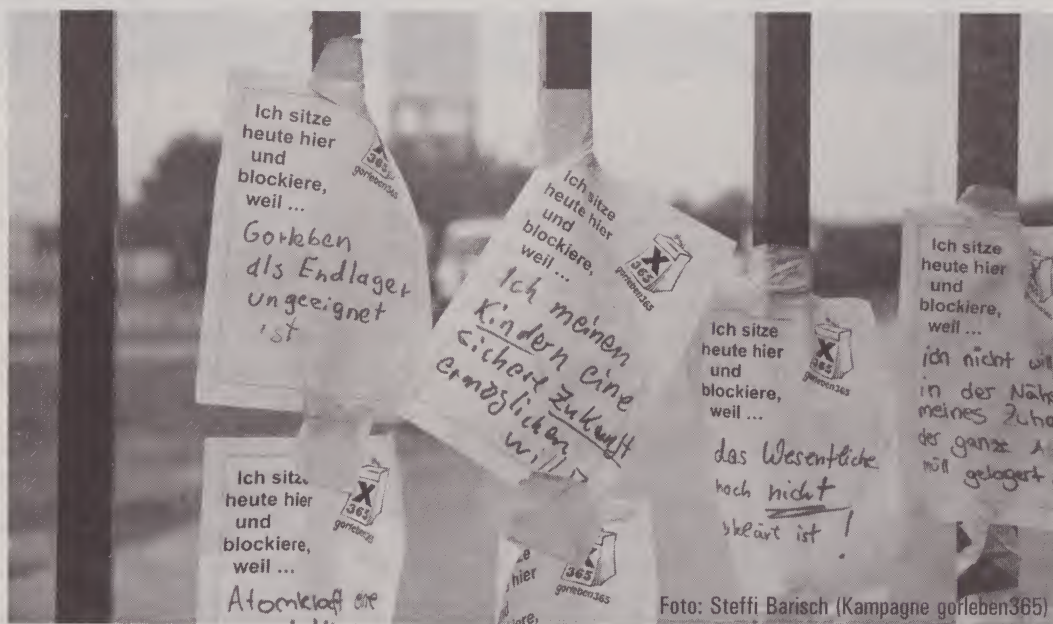 Ich sitze
heute hier
und
blockiere,
weil ...
X
365
gorleben365
Gorleben
als Endlager
ungeeignet
ist
Ich sitze
heute hier
und
blockiere,
weil ...
X
365
gorleben365
Ich meinen
Kindern eine
sichere Zukunft
ermöglichen
will
Ich sitze
heute hier
und
blockiere,
weil ...
X
365
gorleben365
das Wesentliche
noch nicht
ist !
Ich sitze
heute hier
und
blockiere,
weil ...
ich nicht
in der Nähe
meines
der ganze
gelagert
Ich
heute hier
und
blockiere,
weil ...
X
365
gorleben365
Atomkraft
hier
365
gorleben365
Foto: Steffi Barisch (Kampagne gorleben365)